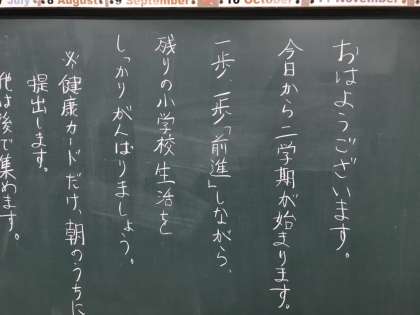 July
8 August
9 September
10 October
11 November
おはようございます。
今日から二学期が始まります。
一歩、一歩「前進」しながら、
残りの小学校生活を
しっかりがんばりましょう。
※健康カードだけ、朝のうちに
提出します。
他は後で集めます。